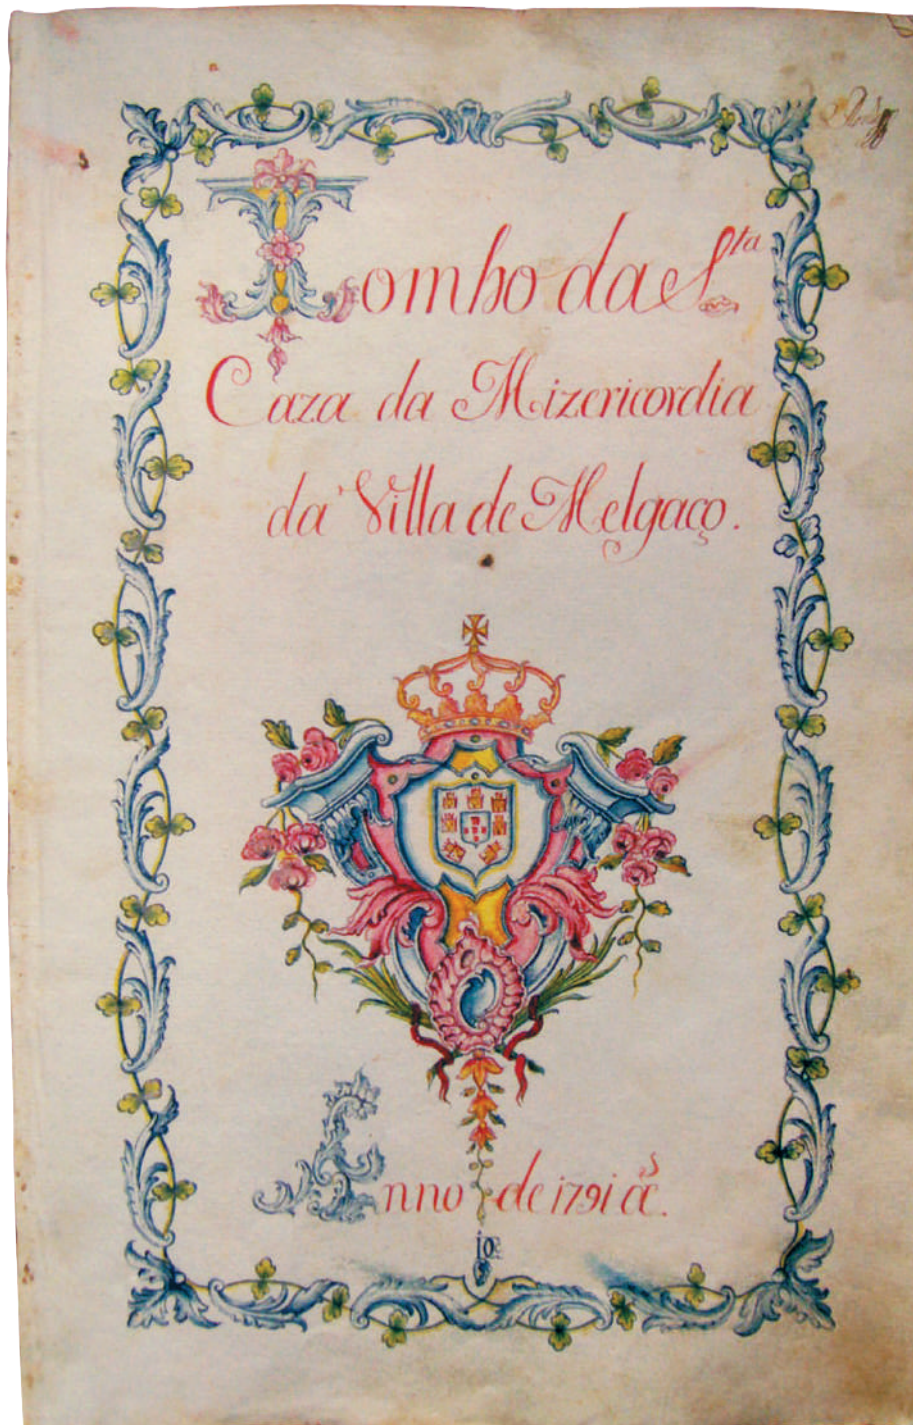 Tombo da Sta
Caza da Mizericordia
da Villa de Melgaço.
Anno de 1791 as.